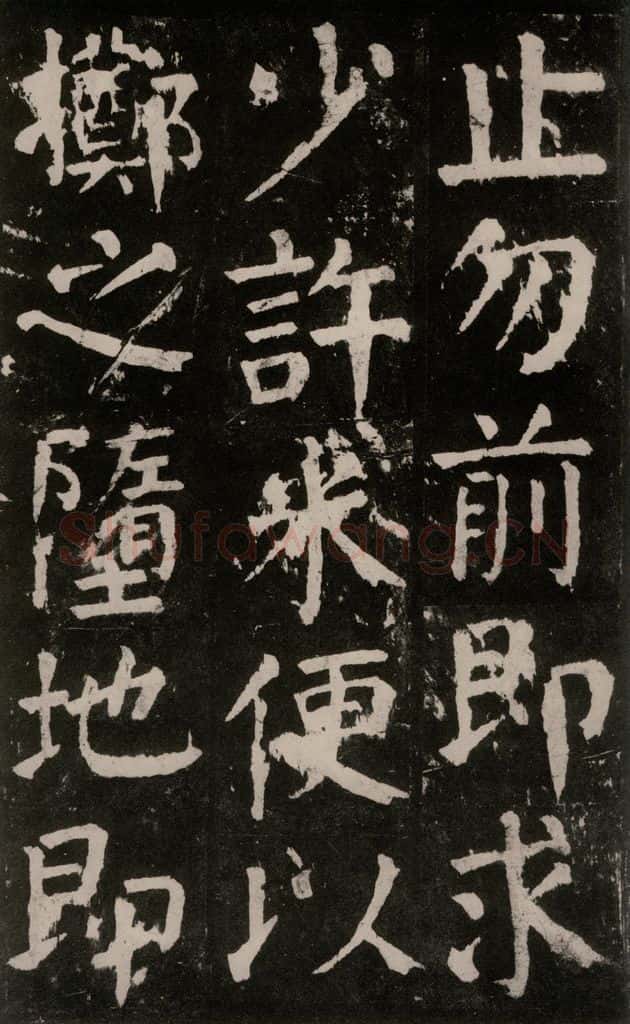 止勿前即求
少許米便以
擲之墮地即
Shufawang.CN